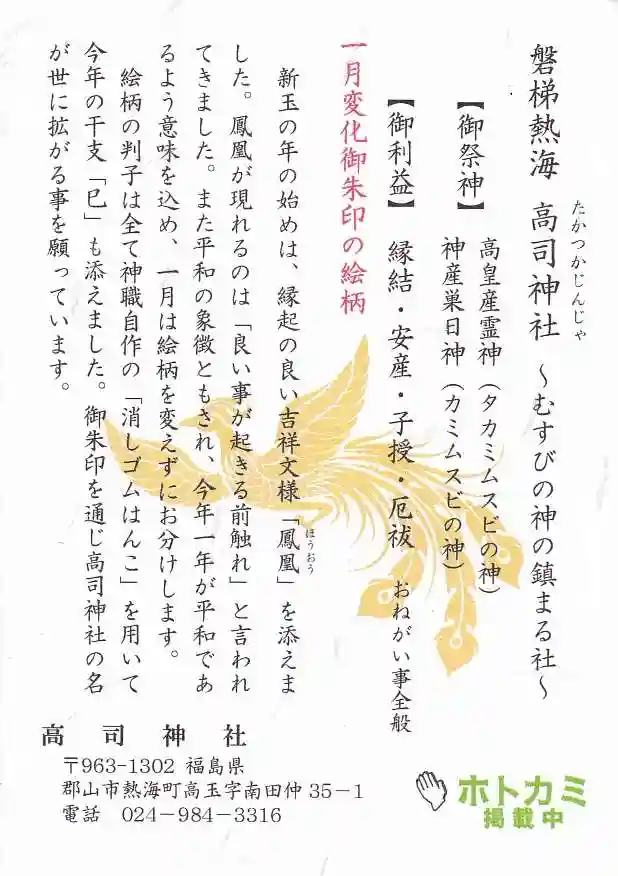 磐梯熱海 高司神社 ～むすびの神の鎮まる社～
たかつかじんじゃ
【御祭神】 高皇産霊神（タカミムスビの神）
神産巣日神（カミムスビの神）
【御利益】 縁結・安産・子授・厄祓 おねがい事全般
一月変化御朱印の絵柄
新玉の年の始めは、縁起の良い吉祥文様「鳳凰」を添えま
ほうおう
した。鳳凰が現れるのは「良い事が起きる前触れ」と言われ
てきました。また平和の象徴ともされ、今年一年が平和であ
るよう意味を込め、一月は絵柄を変えずにお分けします。
絵柄の判子は全て神職自作の「消しゴムはんこ」を用いて
今年の干支「巳」も添えました。御朱印を通じ高司神社の名
が世に拡がる事を願っています。
高司神社
〒963-1302 福島県
郡山市熱海町高玉字南田仲35－1
電話 024－984－3316
ホトカミ
掲載中